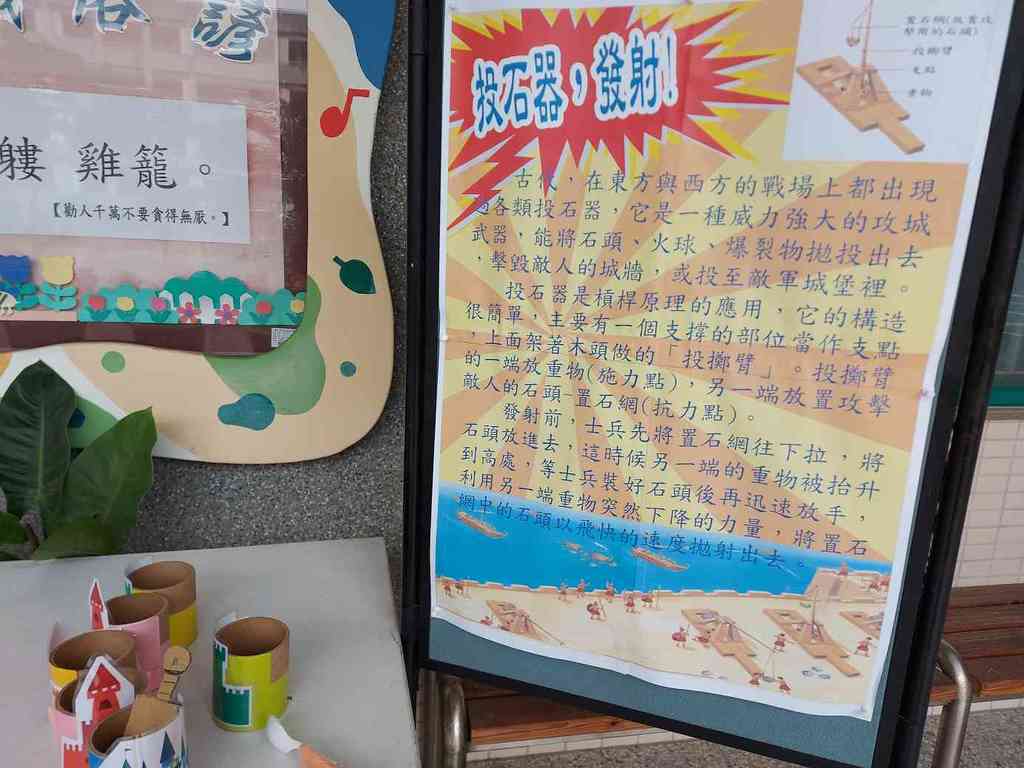 俗諺
雞籠。
【勸人千萬不要貪得無厭。】
投石器，發射！
置石網(放置攻
擊用的石頭)
投擲臂
支點
重物
古代，在東方與西方的戰場上都出現
過各類投石器，它是一種威力強大的攻城
武器，能將石頭、火球、爆裂物拋投出去
，擊毀敵人的城牆，或投至敵軍城堡裡。
投石器是槓桿原理的應用，它的構造
很簡單，主要有一個支撐的部位當作支點
，上面架著木頭做的「投擲臂」。投擲臂
的一端放重物(施力點)，另一端放置攻擊
敵人的石頭-置石網(抗力點)。
發射前，士兵先將置石網往下拉，將
石頭放進去，這時候另一端的重物被抬升
到高處，等士兵裝好石頭後再迅速放手，
利用另一端重物突然下降的力量，將置石
網中的石頭以飛快的速度拋射出去。